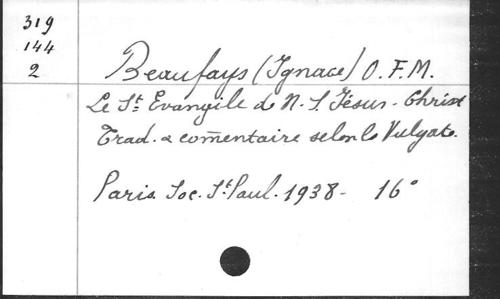 319
144
2
Beaufays (Ignace) O.F.M.
Le St. Evangile de N. S. Jésus-Christ
Trad. & com̄entaire selon la Vulgate.
Paris. Soc. St Paul. 1938- 16°